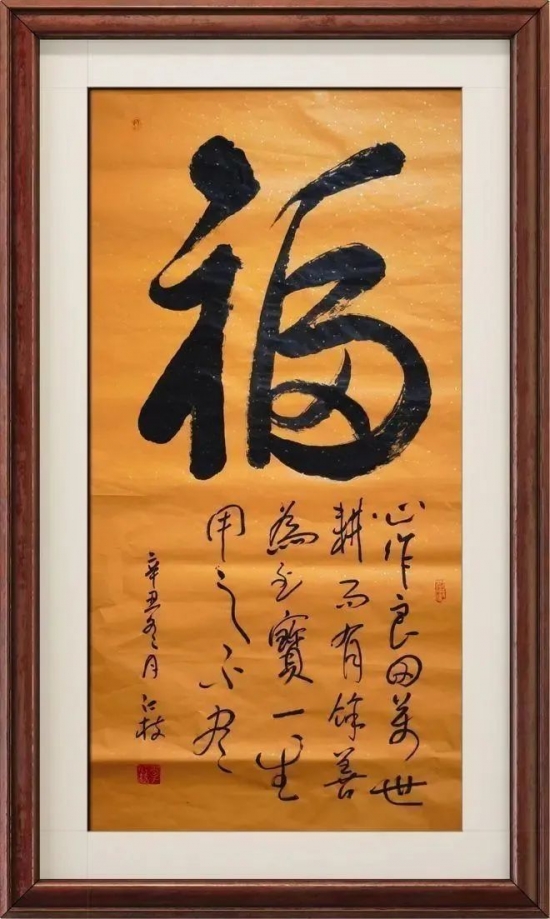 福
心作良田萬世
耕而有餘善
為至寶一生
用之不盡
辛丑冬月 江枝